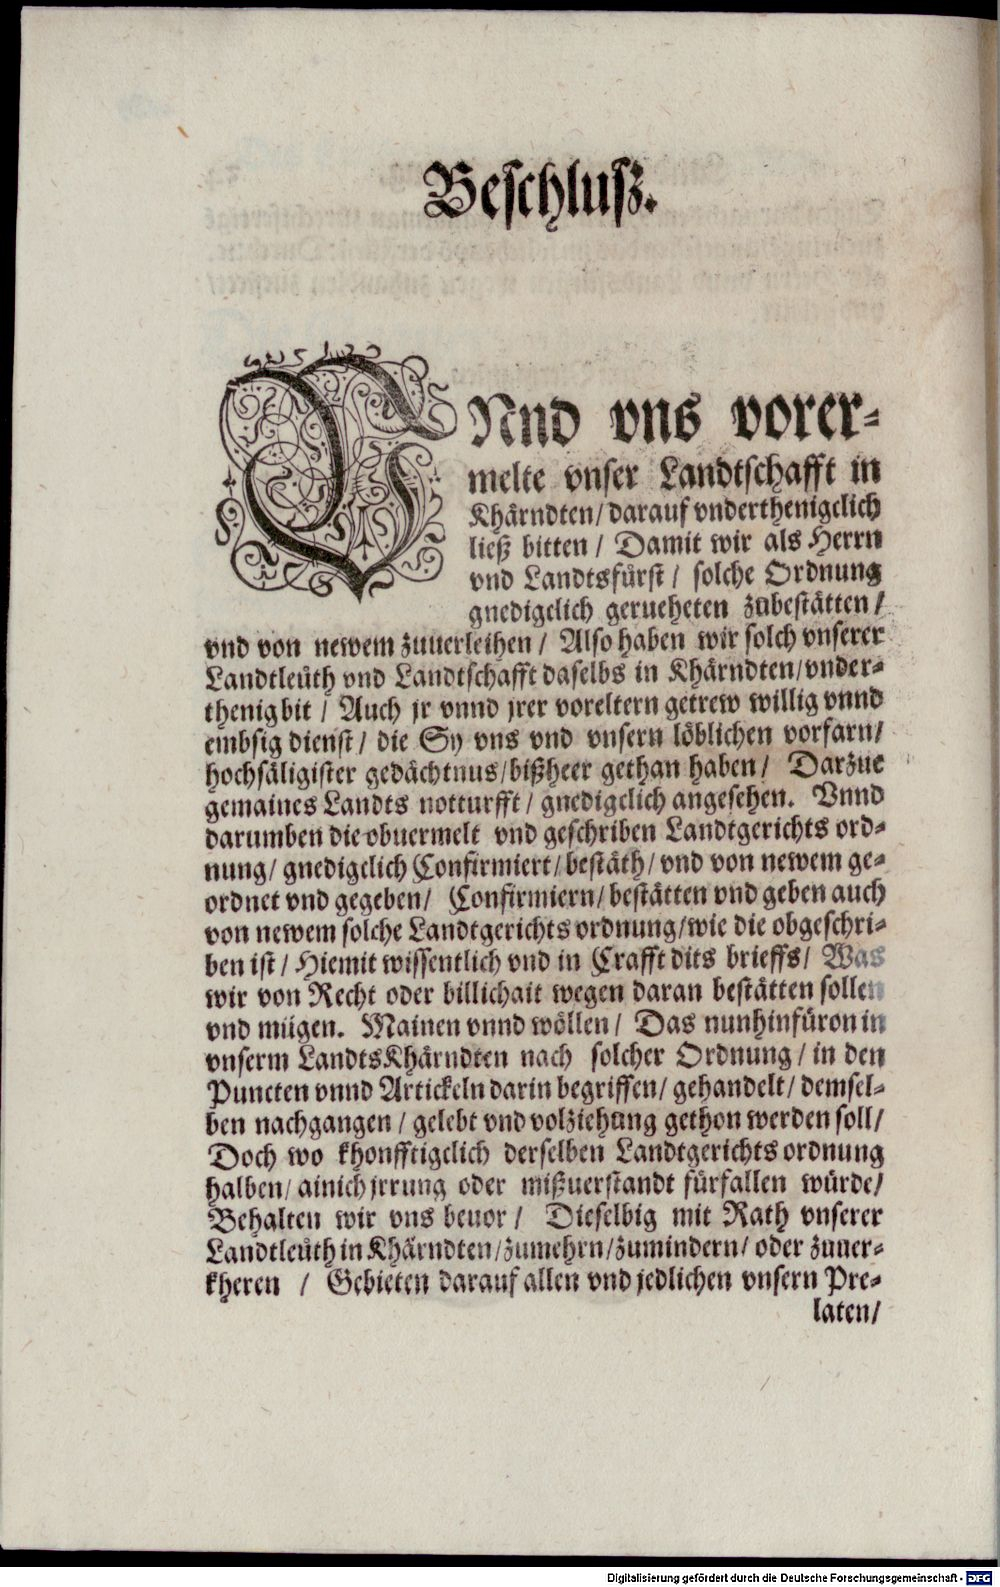 Beschluß.
VNnd vns vorer-
melte vnser Landtschafft in
Khärndten/ darauf vnderthenigclich
ließ bitten / Damit wir als Herrn
vnd Landtsfürst / solche Ordnung
gnedigclich gerueheten zůbestätten /
vnd von newem zuuerleihen / Also haben wir solch vnserer
Landtleüth vnd Landtschafft daselbs in Khärndten/ vnder-
thenig bit / Auch jr vnnd jrer voreltern getrew willig vnnd
embsig dienst / die Sy vns vnd vnsern löblichen vorfarn/
hochsäligister gedächtnus/ bißheer gethan haben / Darzůe
gemaines Landts notturfft / gnedigclich angesehen. Vnnd
darumben die obuermelt vnd geschriben Landtgerichts ord-
nung/ gnedigclich Confirmiert/ bestäth/ vnd von newem ge-
ordnet vnd gegeben/ Confirmiern/ bestätten vnd geben auch
von newem solche Landtgerichts ordnung/ wie die obgeschri-
ben ist / Hiemit wissentlich vnd in Crafft dits brieffs/ Was
wir von Recht oder billichait wegen daran bestätten sollen
vnd mügen. Mainen vnnd wöllen / Das nunhinfüron in
vnserm Landts Khärndten nach solcher Ordnung / in den
Puncten vnnd Artickeln darin begriffen/ gehandelt/ demsel-
ben nachgangen / gelebt vnd volziehung gethon werden soll/
Doch wo khonfftigclich derselben Landtgerichts ordnung
halben/ ainich jrrung oder mißuerstandt fürfallen würde/
Behalten wir vns beuor / Dieselbig mit Rath vnserer
Landtleüth in Khärndten/ zůmehrn/ zůmindern/ oder zuuer-
kheren / Gebieten darauf allen vnd jedlichen vnsern Pre-
laten/
Digitalisierung gefördert durch die Deutsche Forschungsgemeinschaft - DFG